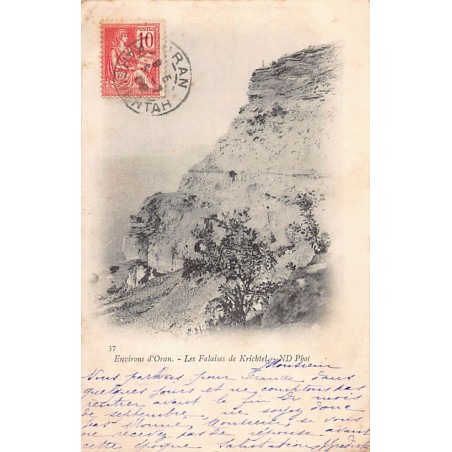 10
ORAN
NTAH
37
Environs d'Oran. - Les Falaises de Krichtel. - ND Phot
Monsieur
Nous partons pour France dans
quelques jours et ne comptons pas
rentrer avant la fin du mois
de septembre, ne soyez donc
pas étonné, Monsieur, si vous
ne recevez pas de réponse avant
cette époque Salutations